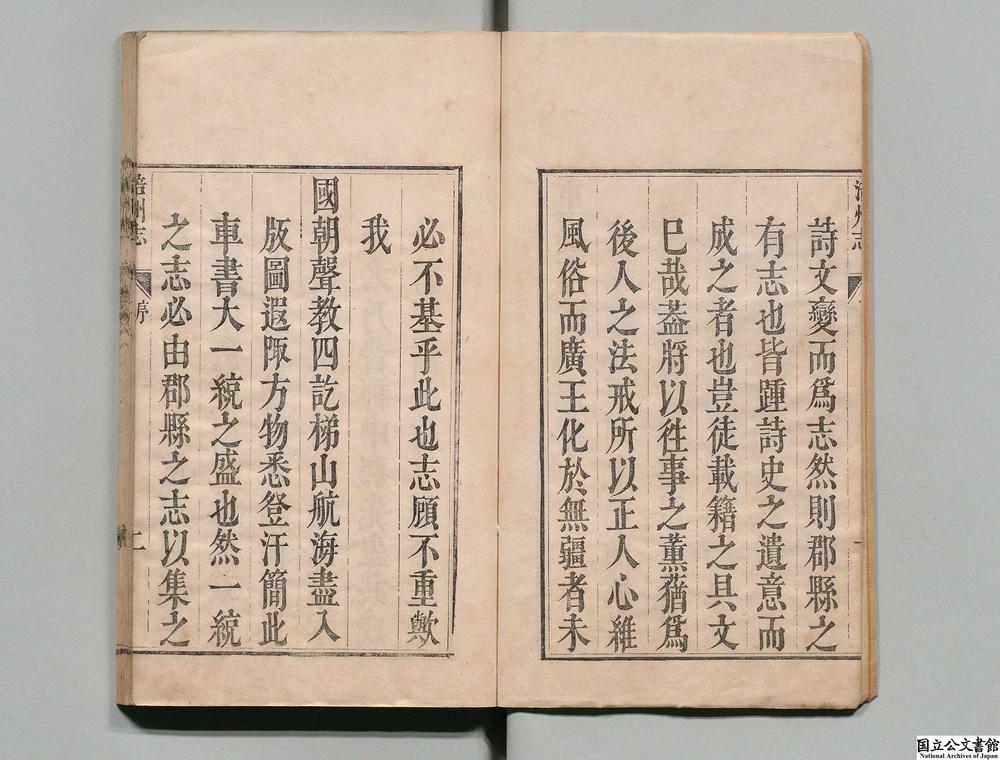 詩文變而爲志然則郡縣之
有志也皆踵詩史之遺意而
成之者也豈徒載籍之具文
巳哉蓋將以徃事之薰蕕爲
後人之法戒所以正人心維
風俗而廣王化於無疆者未
必不基乎此也志顧不重歟
我
國朝聲教四訖梯山航海盡入
版圖遐陬方物悉登汗簡此
車書大一統之盛也然一統
之志必由郡縣之志以集之
涪州志
序
二
国立公文書館
National Archives of Japan